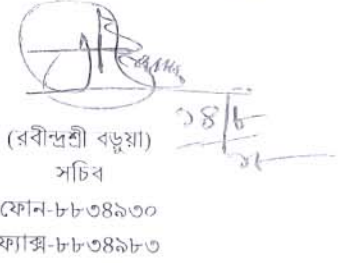 ১৪/৮
(রবীন্দ্রশ্রী বড়ুয়া)
সচিব
ফোন-৮৮৩৪৯৩০
ফ্যাক্স-৮৮৩৪৯৮৩